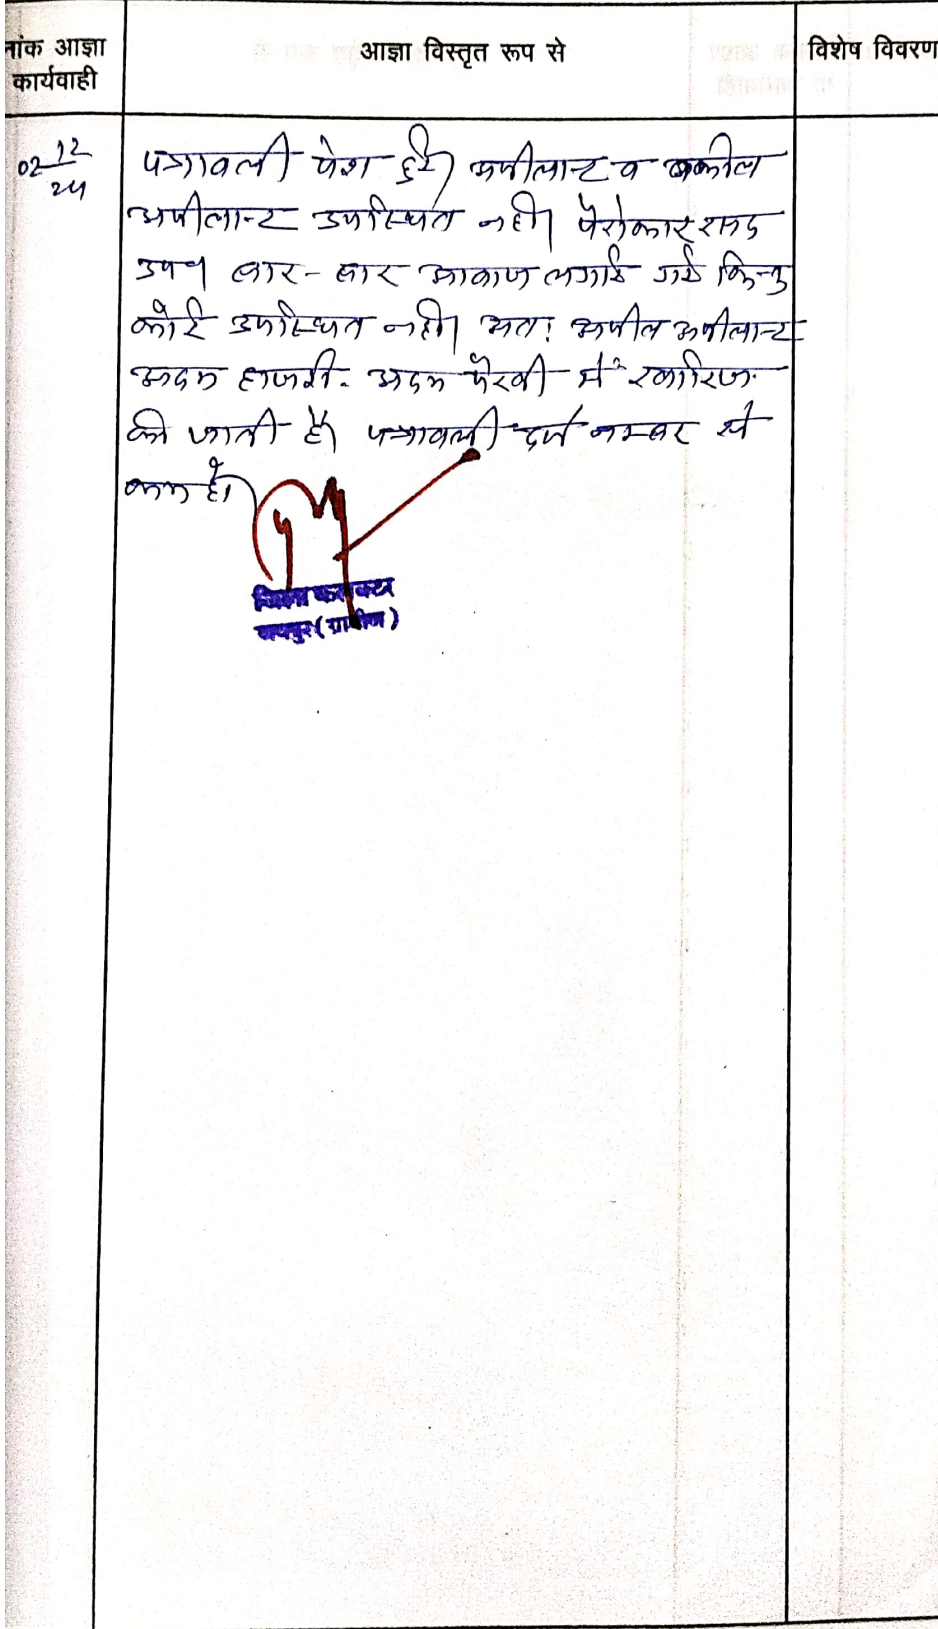 नांक आज्ञा
कार्यवाही
आज्ञा विस्तृत रूप से
विशेष विवरण
02 12/24
पत्रावली पेश हुई। अपीलान्ट व वकील
अपीलान्ट उपस्थित नही। पैरोकार
उप० बार-बार आवाज लगाई गई किन्तु
कोई उपस्थित नही। अतः अपील अपीलान्ट
अदम हाजरी-अदम पैरवी में खारिज
की जाती है। पत्रावली दर्ज नम्बर से
कम हो।
जिला कलक्टर
जयपुर (ग्रामीण)